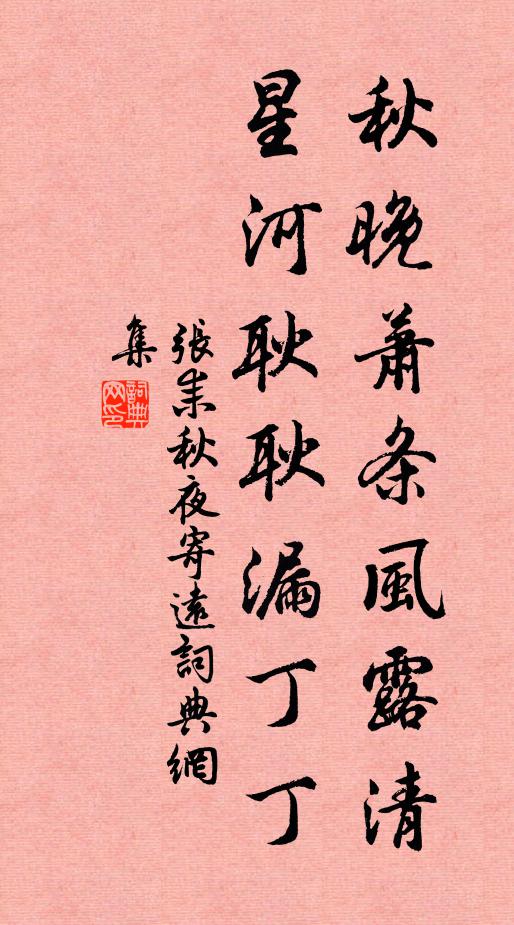 秋晚蕭条風露清
星河耿耿漏丁丁
張耒秋夜寄遠詞典網
集
詞典
网印